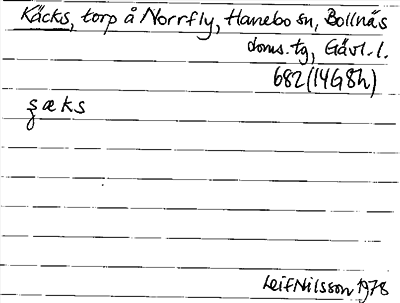 Käcks, torp å Norrfly, Hanebo sn, Bollnäs
doms.tg, Gävl.l.
682(14G8h)
ʂæks
Leif Nilsson 1978